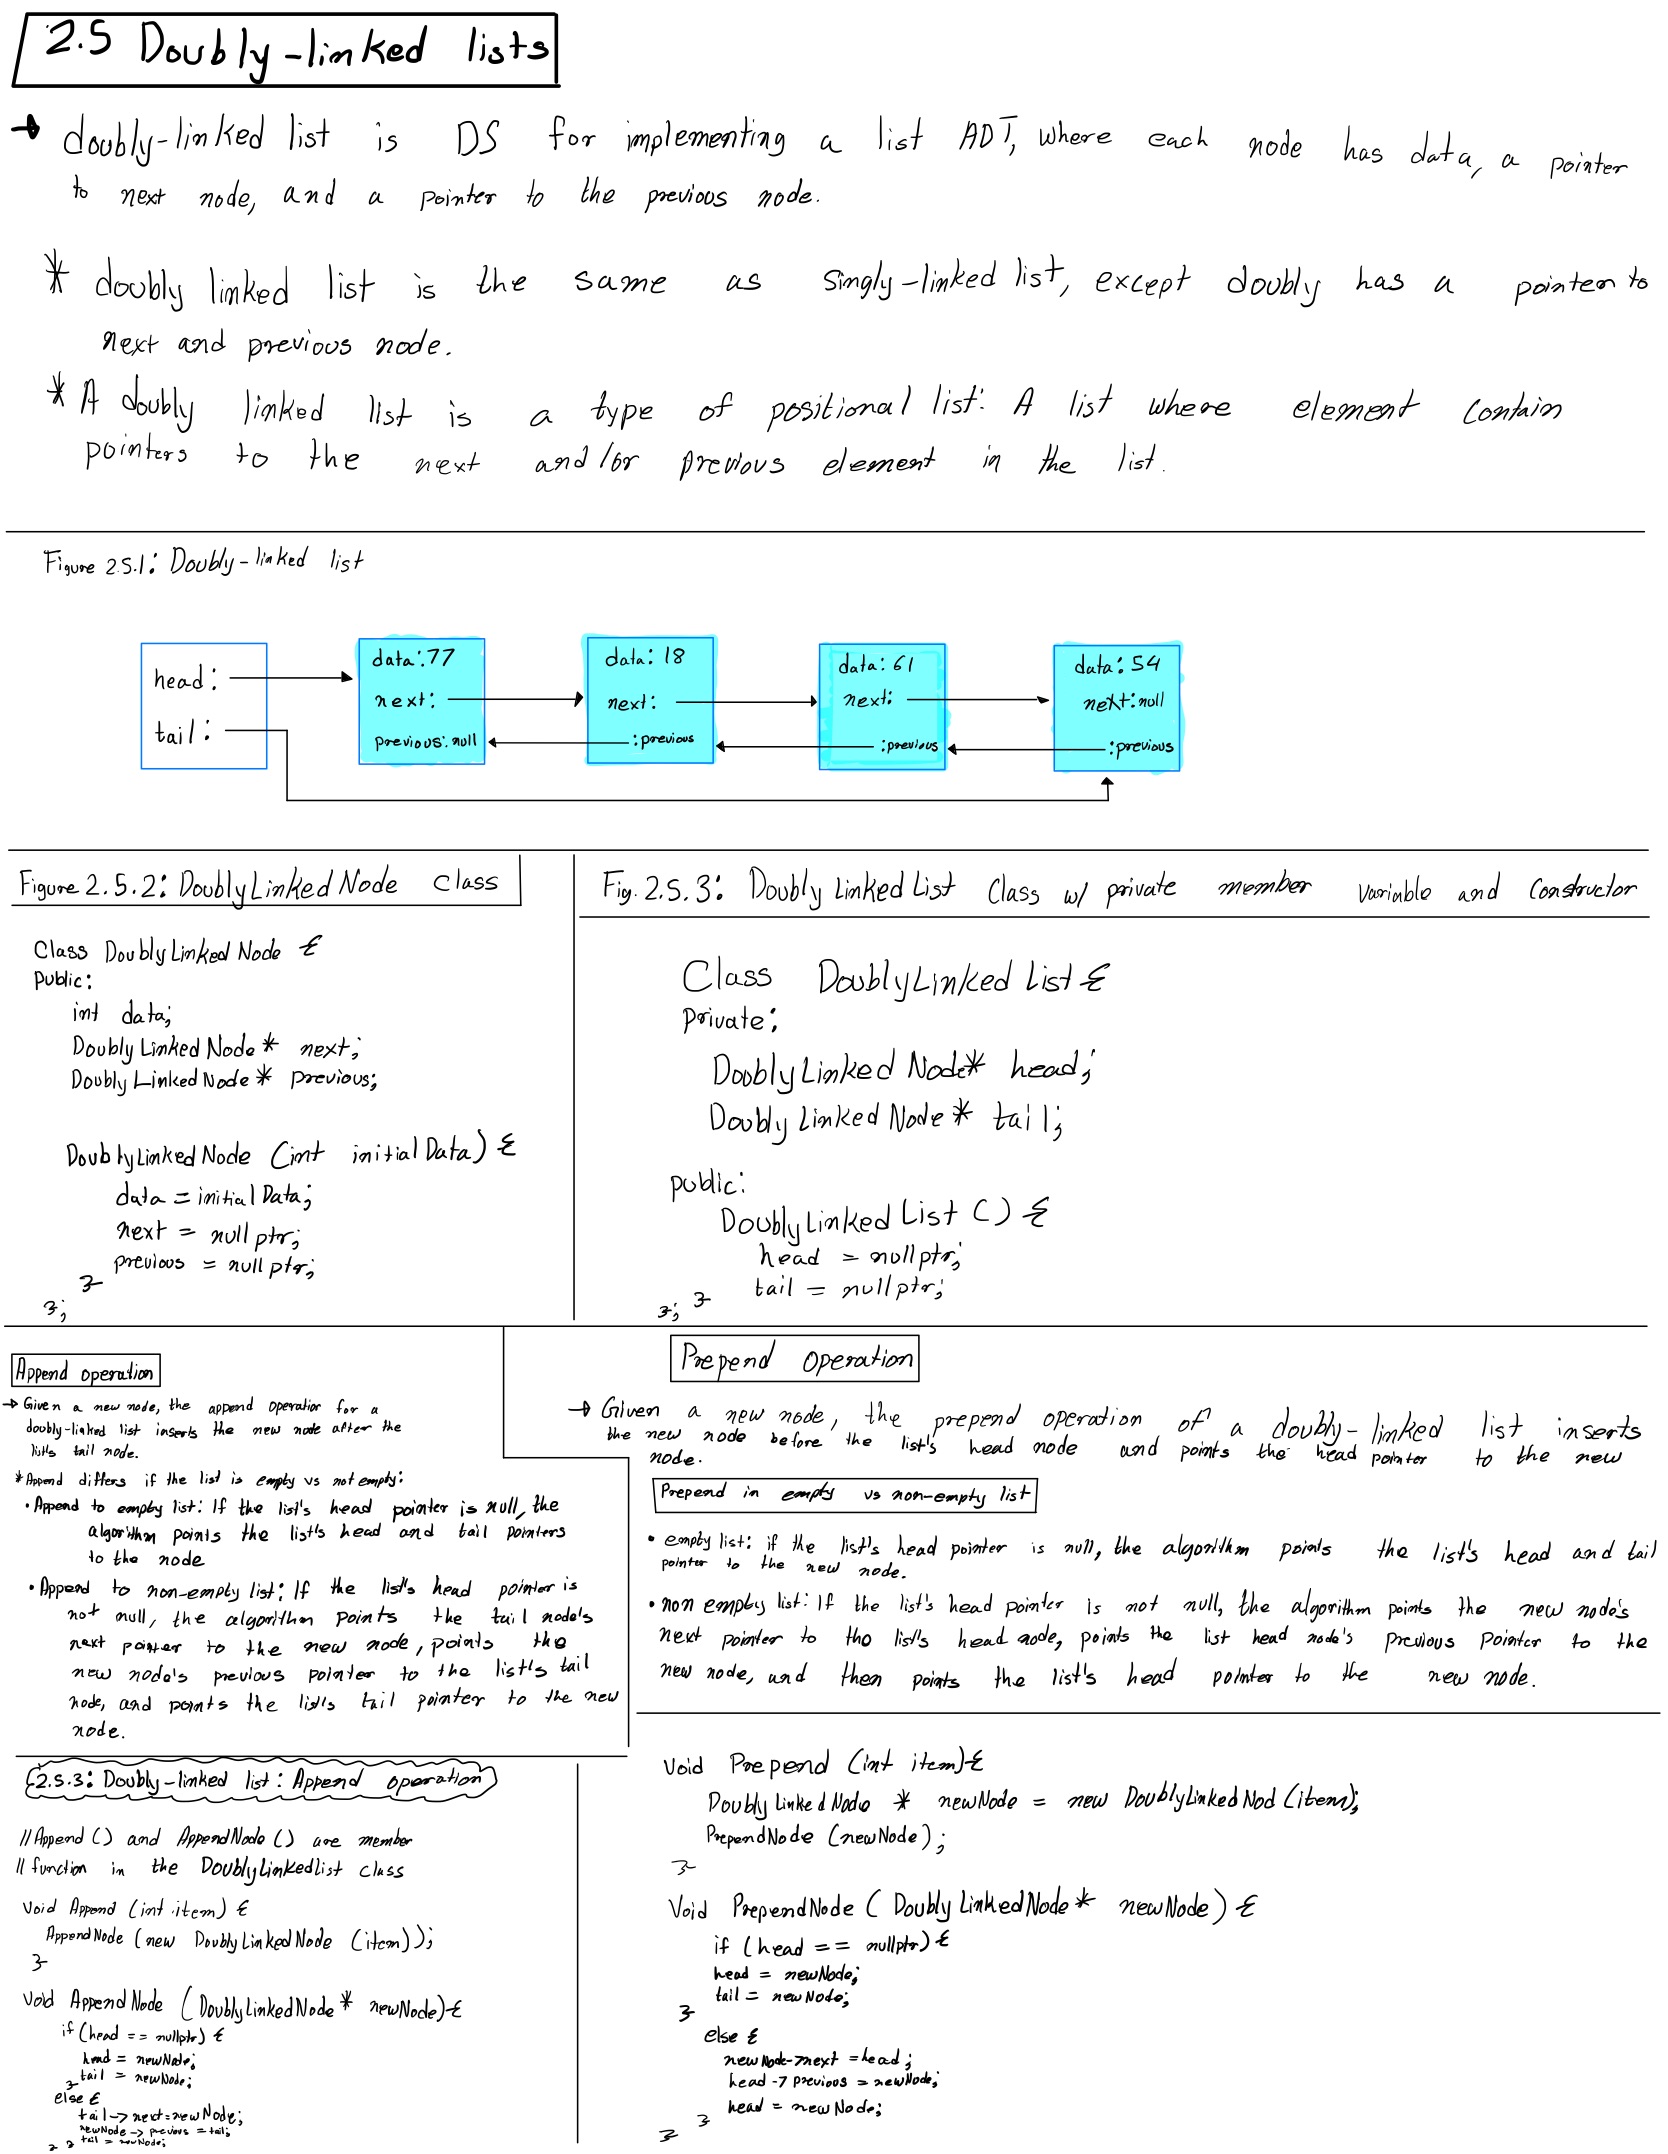 2.5 Doubly-linked lists
→ doubly-linked list is DS for implementing a list ADT, where each node has data, a pointer
to next node, and a pointer to the previous node.
* doubly linked list is the same as singly-linked list, except doubly has a pointer to
next and previous node.
* A doubly linked list is a type of positional list: A list where element contain
pointers to the next and/or previous element in the list.
Figure 2.5.1: Doubly-linked list
head:
tail:
data:77
next:
previous:null
data: 18
next:
:previous
data: 61
next:
:previous
data: 54
next:null
:previous
Figure 2.5.2: DoublyLinkedNode Class
Class DoublyLinkedNode {
Public:
int data;
DoublyLinkedNode* next;
DoublyLinkedNode* previous;
DoublyLinkedNode (int initialData) {
data = initialData;
next = nullptr;
previous = nullptr;
}
};
Fig. 2.5.3: Doubly Linked List Class w/ private member variable and Constructor
Class DoublyLinkedList {
private:
DoublyLinkedNode* head;
DoublyLinkedNode* tail;
public:
DoublyLinkedList () {
head = nullptr;
tail = nullptr;
}
};
Append operation
→ Given a new node, the append operation for a
doubly-linked list inserts the new node after the
list's tail node.
* Append differs if the list is empty vs not empty:
• Append to empty list: If the list's head pointer is null, the
algorithm points the list's head and tail pointers
to the node
• Append to non-empty list: If the list's head pointer is
not null, the algorithm points the tail node's
next pointer to the new node, points the
new node's previous pointer to the list's tail
node, and points the list's tail pointer to the new
node.
2.5.3: Doubly-linked list: Append operation
//Append () and AppendNode () are member
// function in the DoublyLinkedlist class
Void Append (int item) {
AppendNode (new DoublyLinkedNode (item));
}
Void AppendNode (DoublyLinkedNode* newNode) {
if (head == nullptr) {
head = newNode;
tail = newNode;
}
else {
tail -> next = newNode;
newNode -> previous = tail;
tail = newNode;
} }
Prepend Operation
→ Given a new node, the prepend operation of a doubly-linked list inserts
the new node before the list's head node and points the head pointer to the new
node.
Prepend in empty vs non-empty list
• empty list: if the list's head pointer is null, the algorithm points the list's head and tail
pointer to the new node.
• non empty list: If the list's head pointer is not null, the algorithm points the new node's
next pointer to the list's head node, points the list head node's previous pointer to the
new node, and then points the list's head pointer to the new node.
Void Prepend (int item) {
DoublyLinkedNode * newNode = new DoublyLinkedNod (item);
PrependNode (newNode);
}
Void PrependNode ( DoublyLinkedNode* newNode) {
if (head == nullptr) {
head = newNode;
tail = newNode;
}
else {
newNode->next = head;
head -> previous = newNode;
head = newNode;
}
}